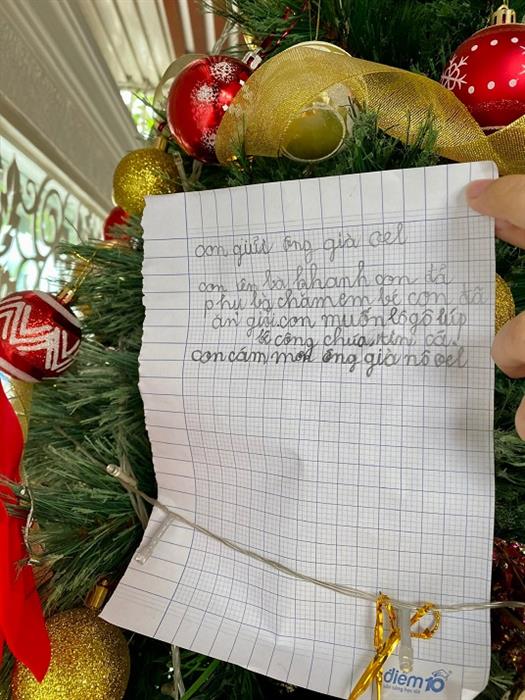 con gửi ông già oel
con tên bà khanh con đã
phụ bà chăm em bé con đã
ăn giỏi con muốn lôgô
công chúa tiên cá.
con cám mơn ông già nô oel
điểm10